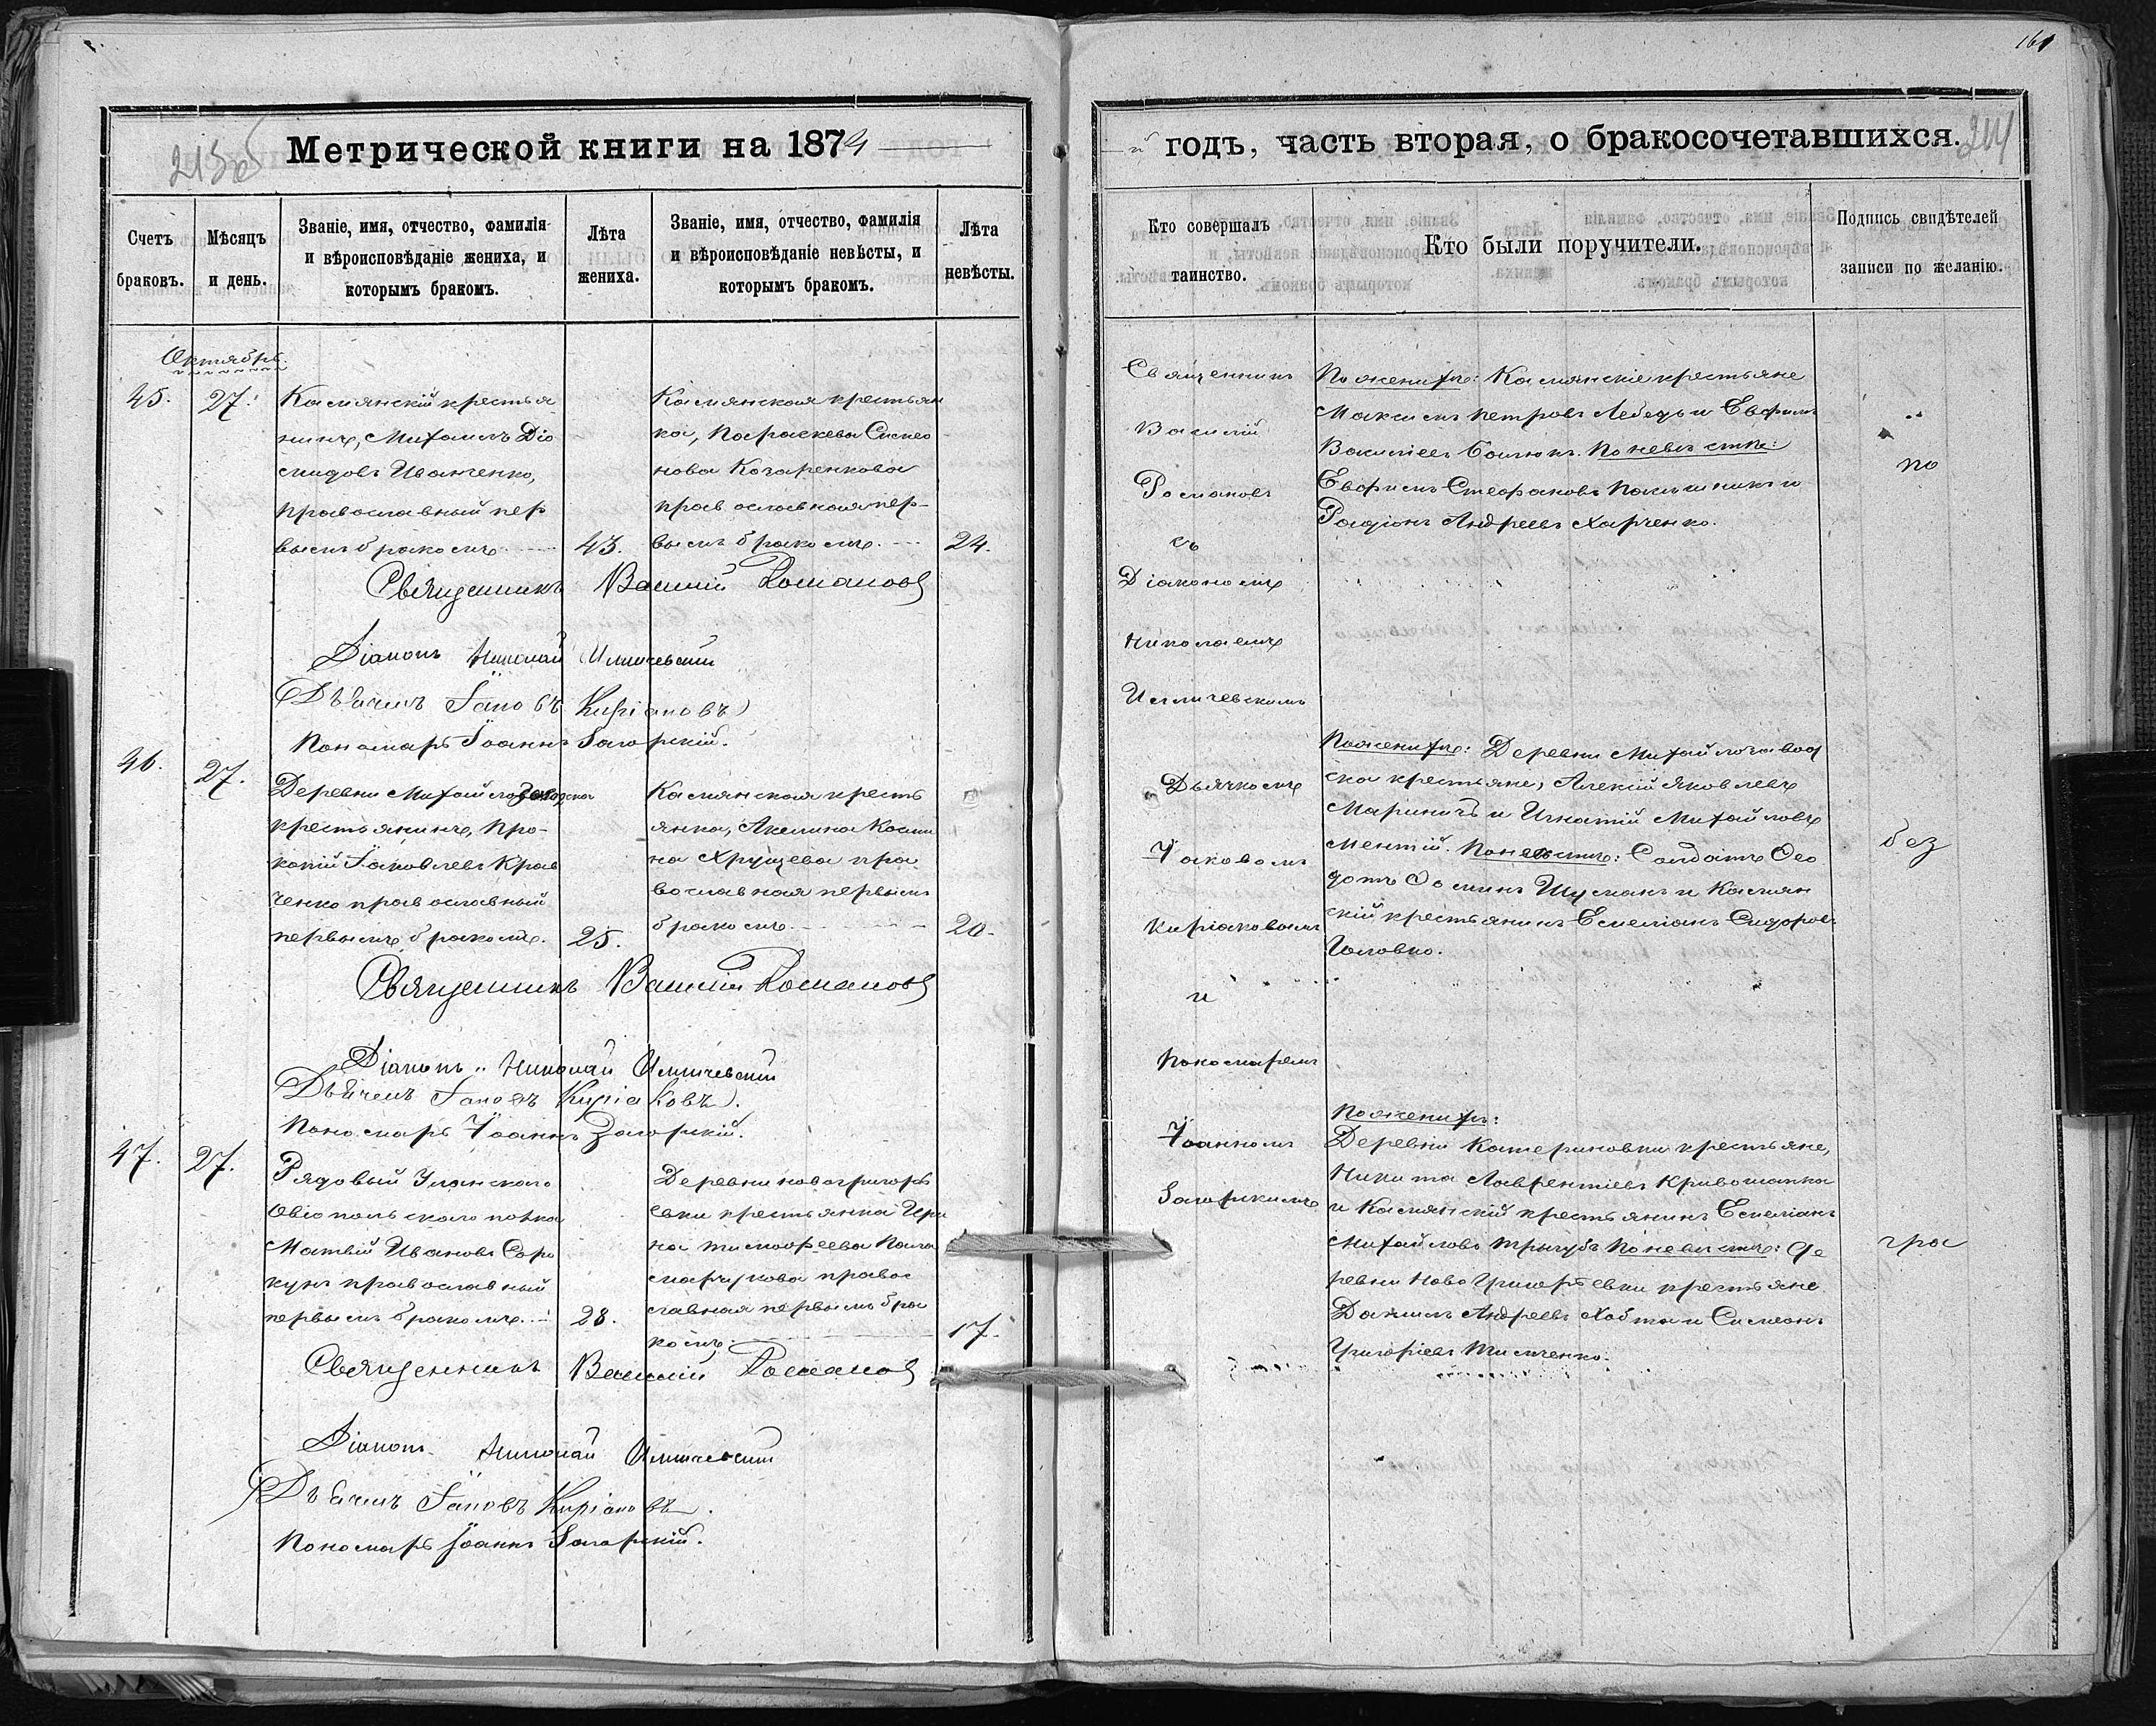 161
213об
Метрической книги на 1874
й годъ, часть вторая, о бракосочетавшихся.
214
Счетъ браковъ.
Мѣсяцъ и день.
Званіе, имя, отчество, фамилія
и вѣроисповѣданіе жениха, и
которымъ бракомъ.
Лѣта
жениха.
Званіе, имя, отчество, фамилія
и вѣроисповѣданіе невѣсты, и
которымъ бракомъ.
Лѣта
невѣсты.
Кто совершалъ
таинство.
Кто были поручители.
Подпись свидѣтелей
записи по желанію.
Октябрь.
45.
27.
Касмянскій крестья
нинъ, Михаилъ Діо
мидовъ Иванченко,
православный пер
вымъ бракомъ.
43.
Касмянская крестьян
ка, Параскева Симео
нова Кочаренкова
православная пер-
вымъ бракомъ.
24.
Священникъ Василій Романовъ
Діаконъ Николай Илличевскій
Дьячекъ Іаковъ Киріаковъ
Пономарь Іоаннъ Загорскій.
46.
27.
Деревни Михайлозаводска
крестьянинъ, Про-
копій Іаковлевъ Крав
ченко православный
первымъ бракомъ.
25.
Касмянская кресть
янка, Акилина Косми
на Хрущева пра
вославная первымъ
бракомъ.
20.
Священникъ Василій Романовъ
Діаконъ Николай Илличевскій
Дьячекъ Іаковъ Киріаковъ.
Пономарь Іоаннъ Загорскій.
47.
27.
Рядовый Уланскаго
Овіопольскаго полка
Матвій Ивановъ Соро
кунъ православный
первымъ бракомъ.
28.
Деревни новогригорь
евки крестьянка Ири
на Тимофеева
православная первымъ бра
комъ.
17.
Священникъ Василій Романовъ
Діаконъ Николай Илличевскій
Дьячекъ Іаковъ Киріаковъ.
Пономарь Іоаннъ Загорскій.
Священникъ
Василій
Романовъ
съ
Діакономъ
Николаемъ
Илличевскимъ
Дьячкомъ
Іаковомъ
Киріаковымъ
и
Пономаремъ
Іоанномъ
Загорскимъ
По женихѣ: Касмянскіе крестьяне
Максимъ Петровъ Лебедь и Евфимъ
Василіевъ. По невѣстѣ:
Евфимъ Стефановъ и
Радіонъ Андреевъ Харченко.
По женихѣ: Деревни Михайлозавод
ска крестьяне, Алексій Яковлевъ
Мариничъ и Игнатій Михайловъ
Ментій. По невѣстѣ: Солдатъ Ѳео
дотъ Ѳоминъ Шуманъ и Касмян
скій крестьянинъ Емеліанъ Сидоровъ
Головко.
По женихѣ:
Деревни Катериновки крестьяне,
Никита Лаврентіевъ Кривошапка
и Касмянскій крестьянинъ Емеліанъ
Михайловъ Трыгубъ По невѣстѣ: де
ревни Ново Григорьевки крестьяне
Даніилъ Андреевъ Хобта и Симеонъ
Григоріевъ Тимченко.
по
без
гра